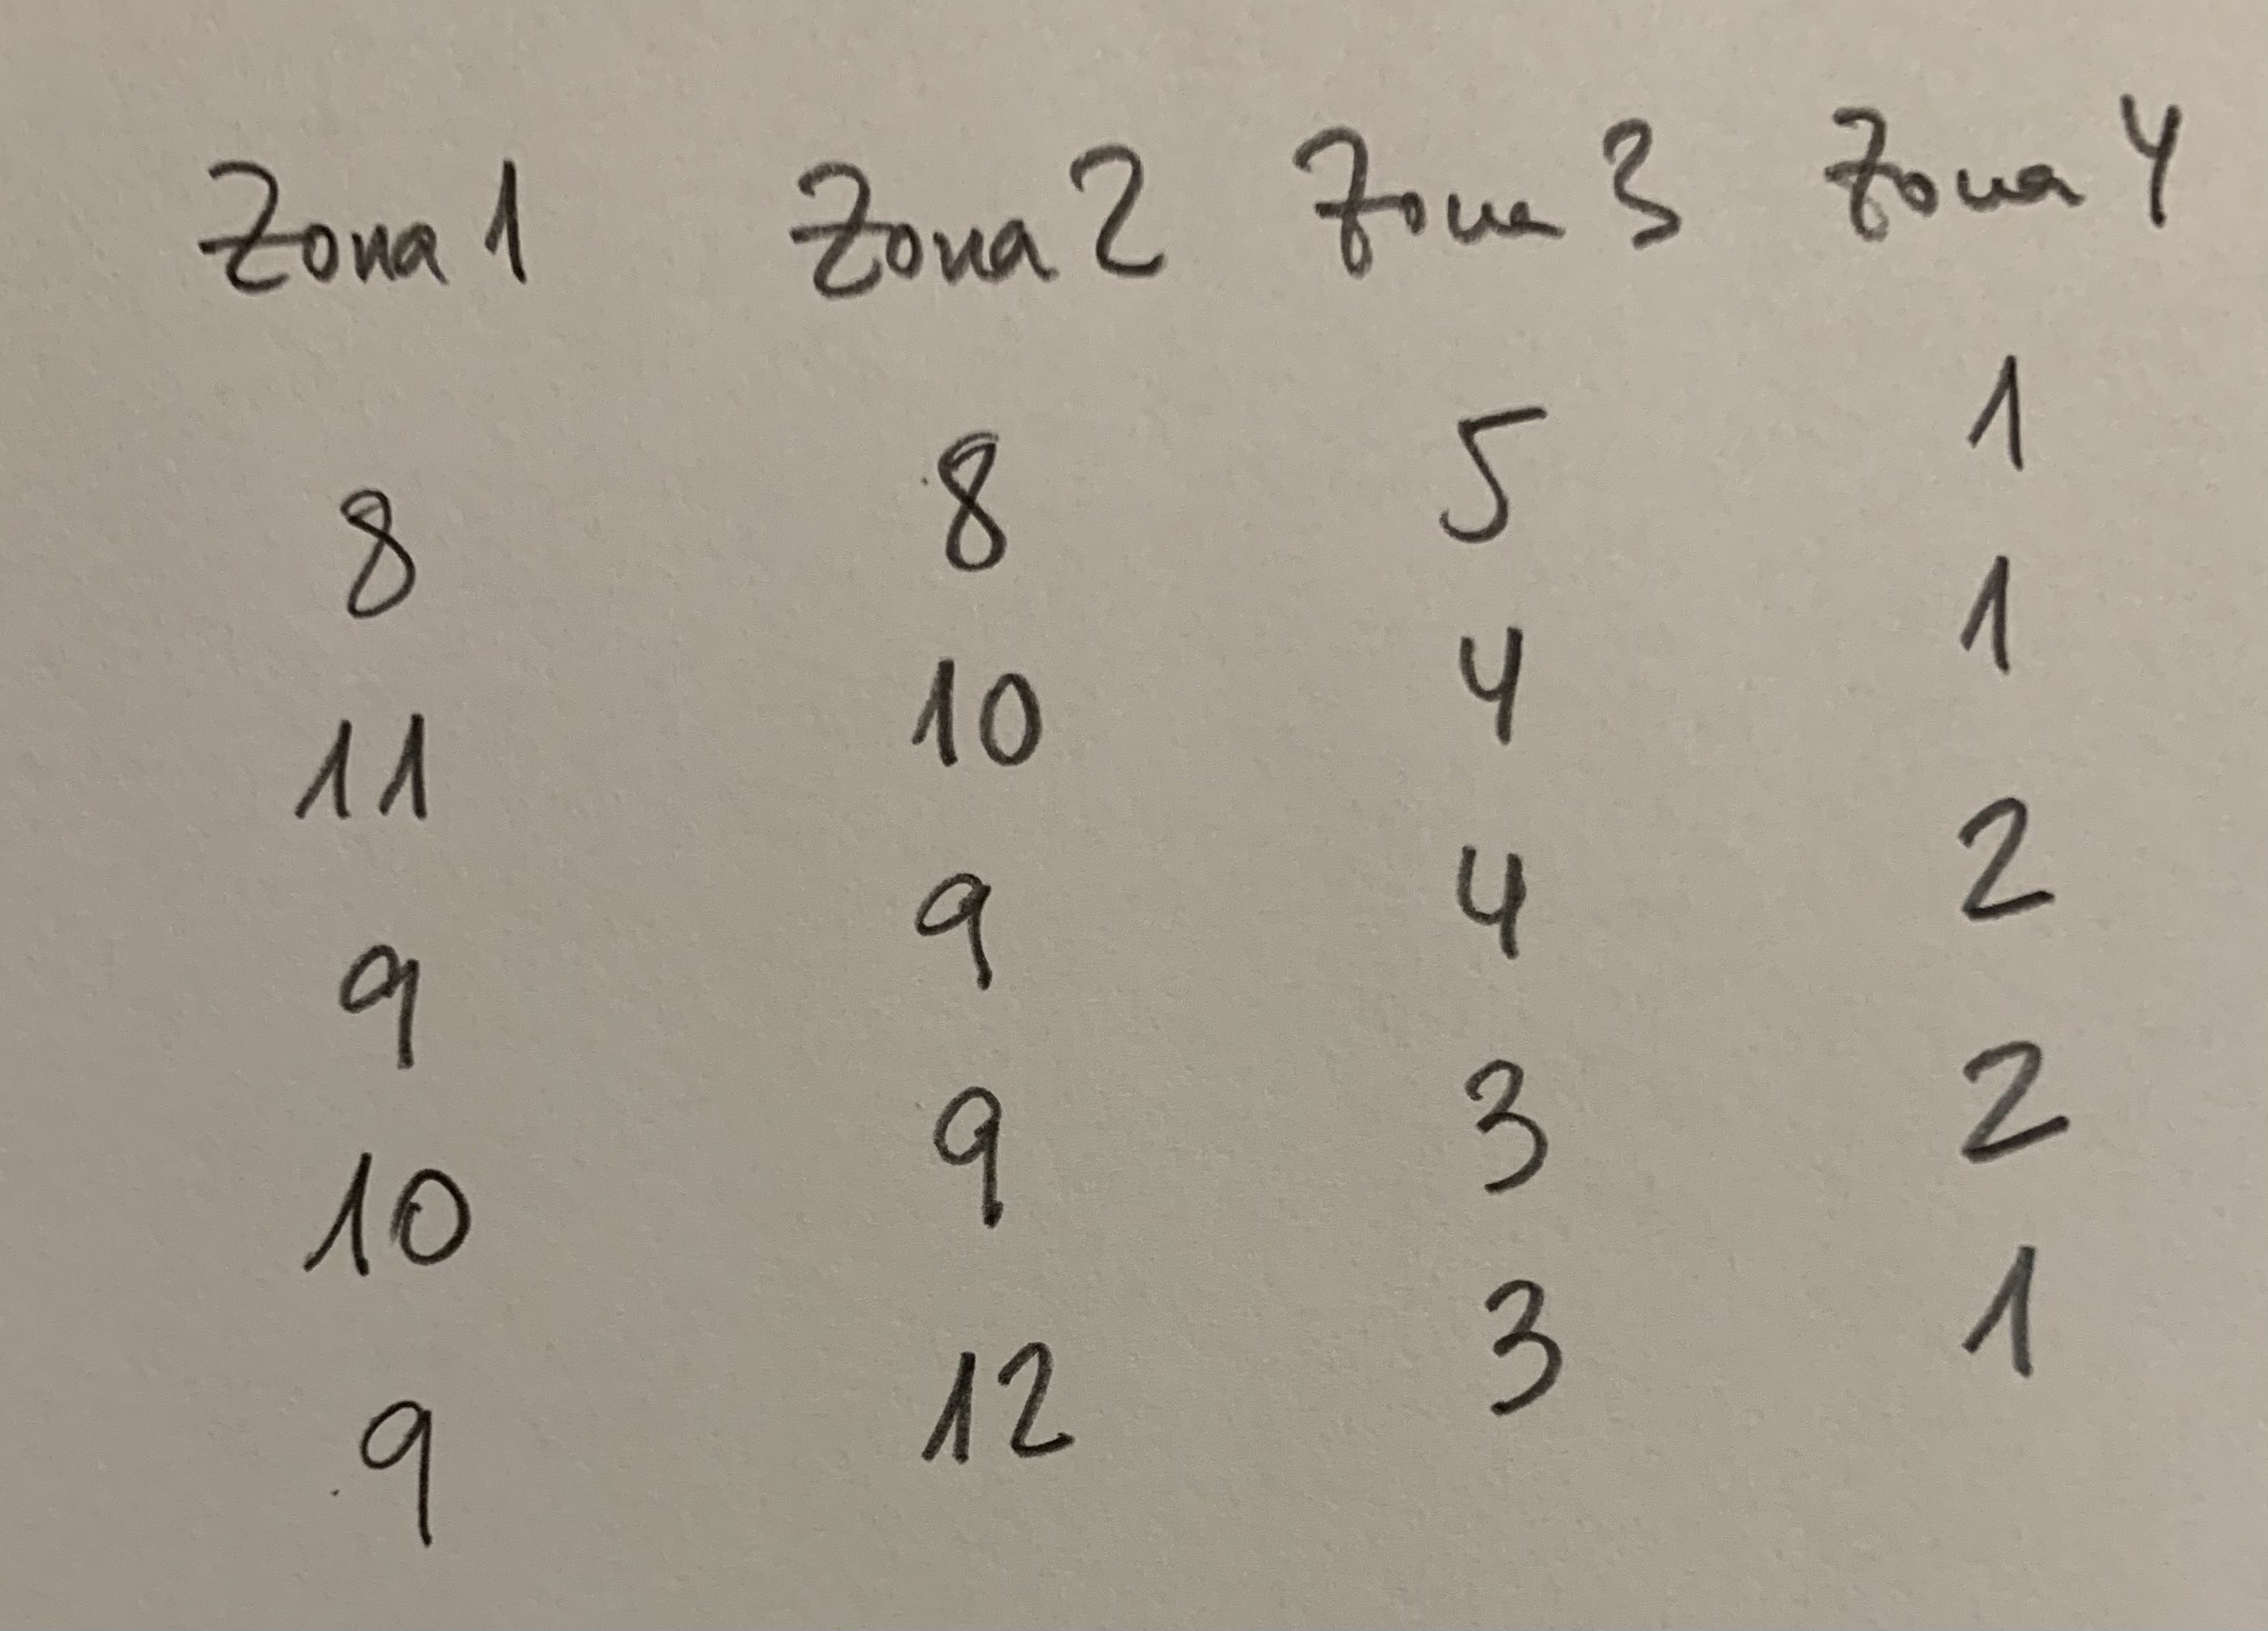 Zona 1 Zona 2 Zona 3 Zona 4
8 8 5 1
11 10 4 1
9 9 4 2
10 9 3 2
9 12 3 1